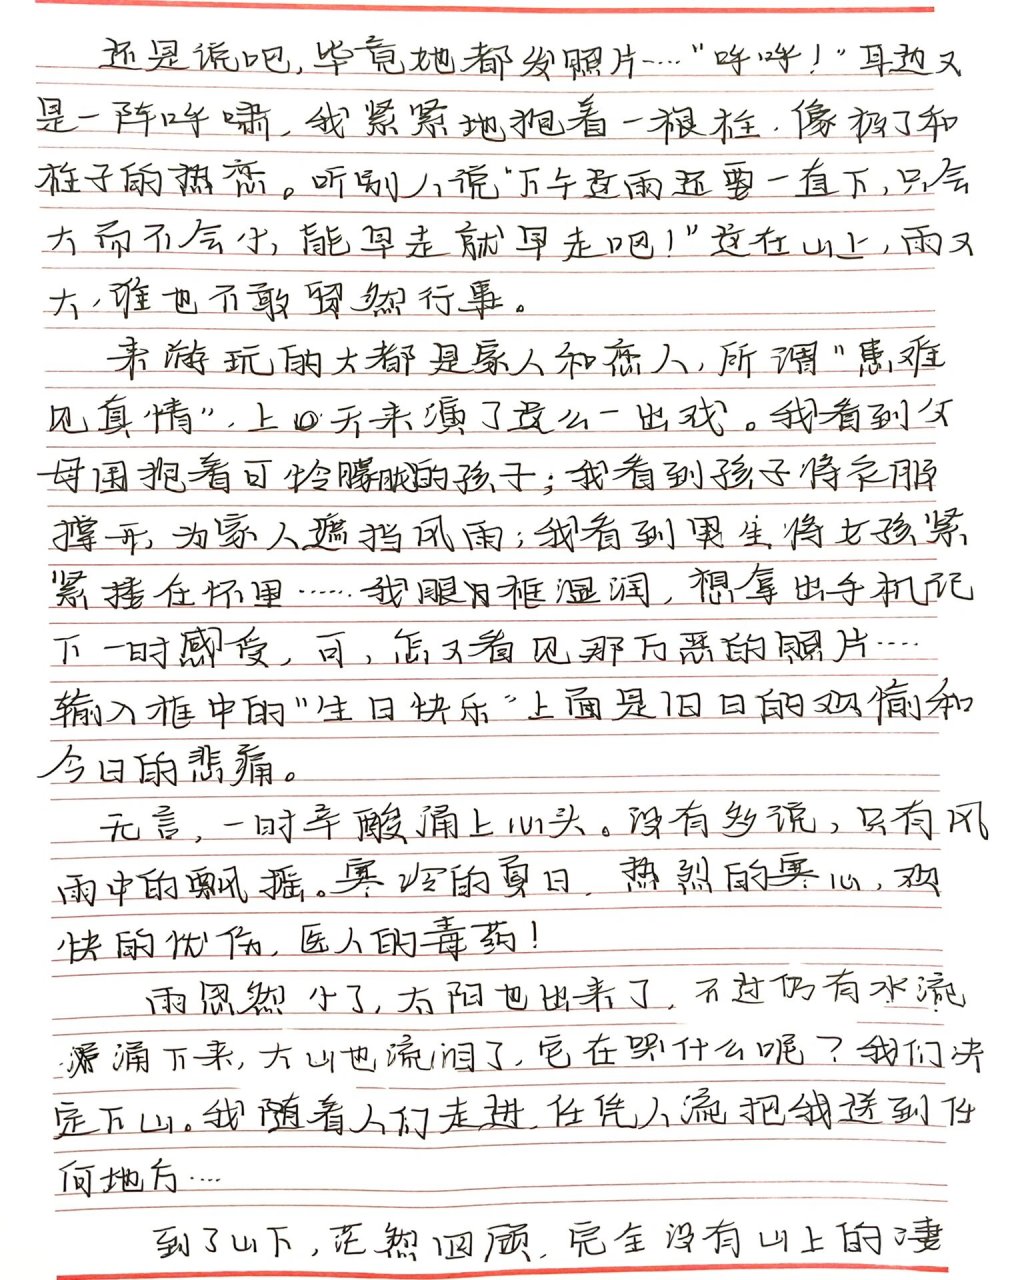 还是说吧，毕竟她都发照片……“呼呼！”耳边又
是一阵呼啸，我紧紧地抱着一根柱，像极了和
柱子的热恋。听别人说“下午这雨还要一直下，只会
大而不会小，能早走就早走吧！”这在山上，雨又
大，谁也不敢贸然行事。
来游玩的大都是家人和恋人，所谓“患难
见真情”，上天来演了这么一出戏。我看到父
母围抱着可怜朦胧的孩子；我看到孩子将衣服
撑开，为家人遮挡风雨；我看到男生将女孩紧
紧搂在怀里……我眼眶湿润，想拿出手机记
下一时感受，可，怎又看见那万恶的照片……
输入框中的“生日快乐”上面是旧日的欢愉和
今日的悲痛。
无言，一时辛酸涌上心头。没有多说，只有风
雨中的飘摇。寒冷的夏日，热烈的寒心，欢
快的忧伤，医人的毒药！
雨忽然小了，太阳也出来了，不过仍有水流
潺涌下来，大山也流泪了，它在哭什么呢？我们决
定下山。我随着人们走进，任凭人流把我送到任
何地方……
到了山下，茫然四顾，完全没有山上的凄